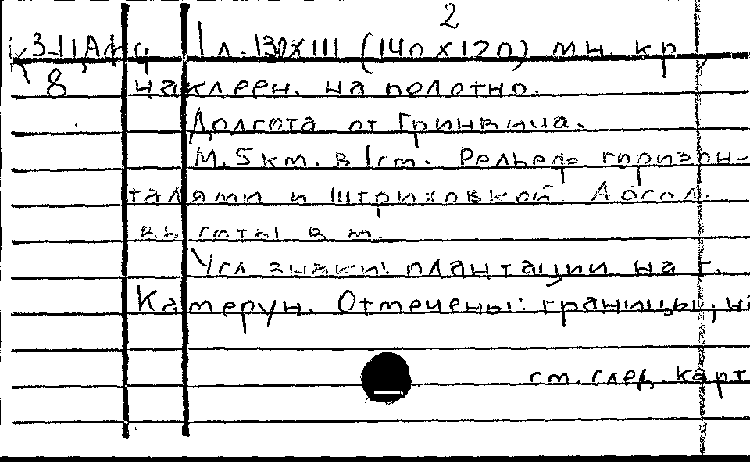 2
К 3-11, 1 л. 130х111 (140х120) мн. кр.
8 наклеен. на полотно.
Долгота от Гринвича.
М. 5 км. в 1 см. Рельеф горизон-
талями и штриховкой. Абсол.
высоты в м.
Усл. знаки: плантации на г.
Камерун. Отмечены: границы, н
см. след. карт